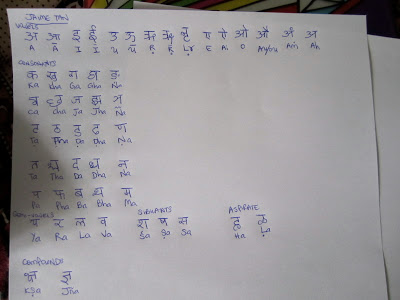 JAIME TAN
VOWELS
अ आ इ ई उ ऊ ऋ ॠ ऌ ए ऐ ओ औ अं अ
A Ā I Ī U Ū Ṛ Ṝ Lṛ E Ai O Am Ah
CONSONANTS
क ख ग घ ङ
Ka Kha Ga Gha Na
च छ ज झ ञ
Ca Cha Ja Jha Ña
ट ठ ड ढ ण
Ṭa Ṭha Ḍa Ḍha Ṇa
त थ द ध न
Ta Tha Da Dha Na
प फ ब भ म
Pa Pha Ba Bha Ma
SEMI-VOWELS SIBILANTS ASPIRATE
य र ल व श ष स ह ळ
Ya Ra La Va Śa Ṣa Sa Ha La
COMPOUNDS
क्ष ज्ञ
KṢa Jña